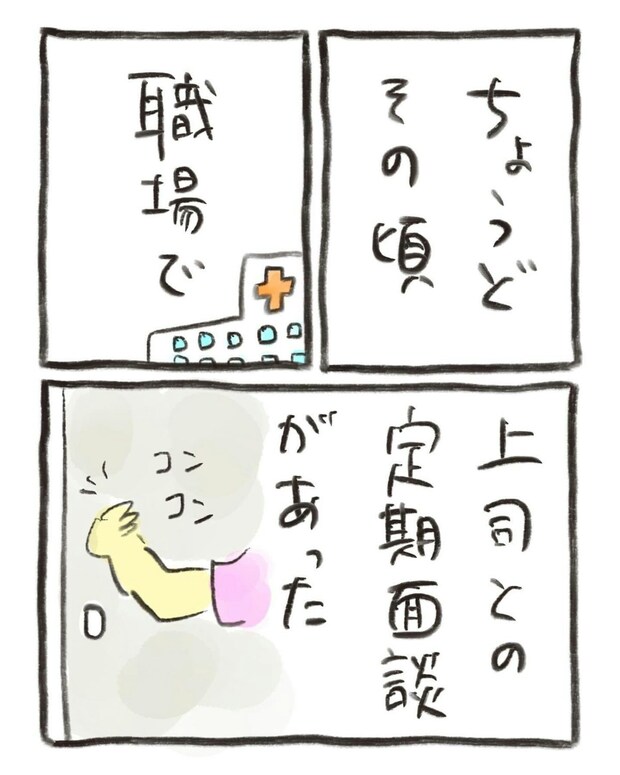 ちょうど
その頃
職場で
上司との
定期面談
があった
コン
コン